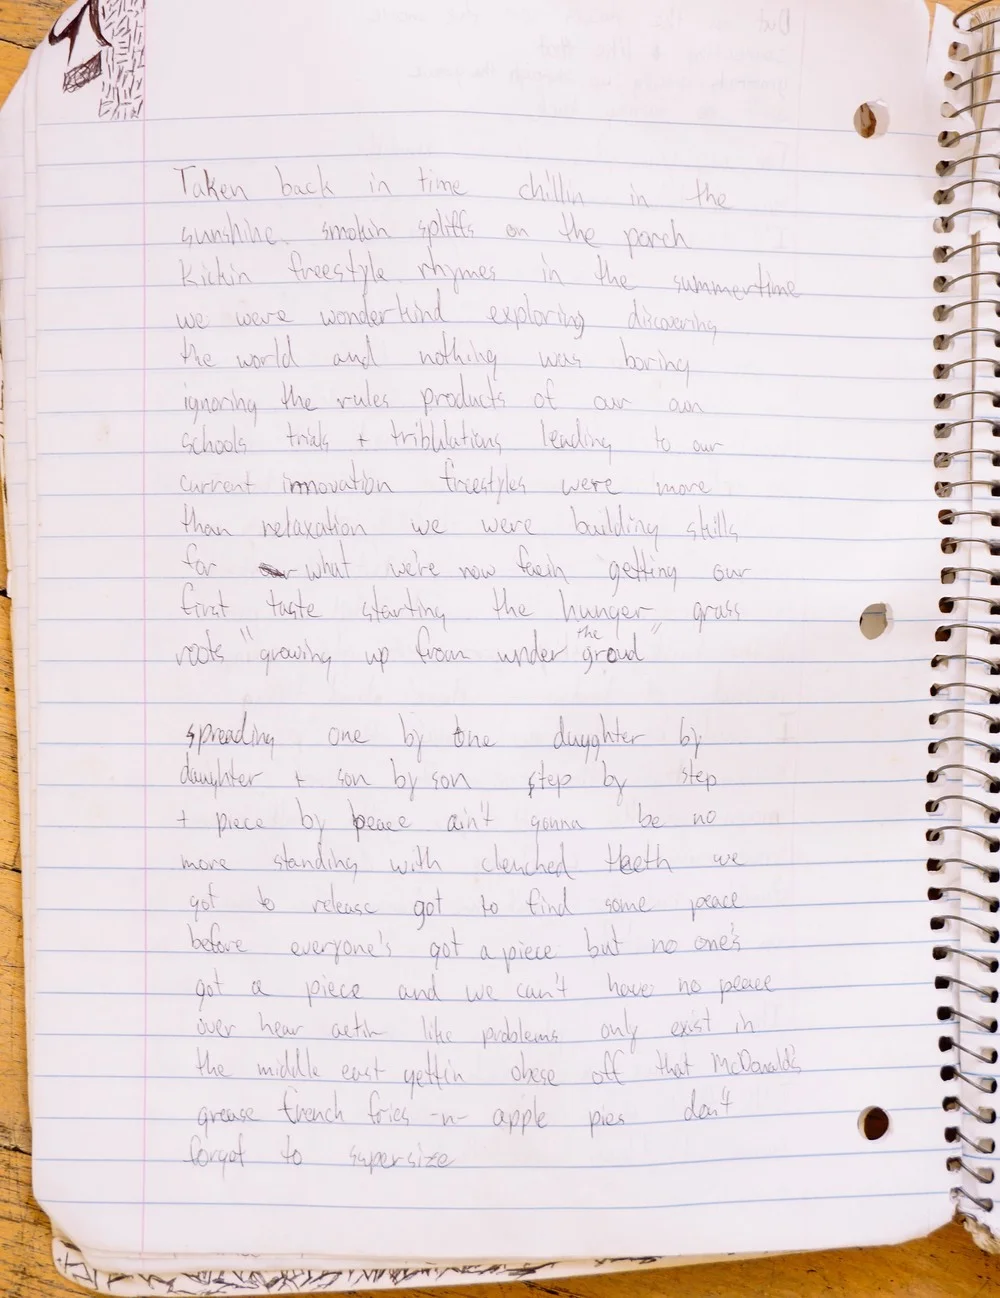 Taken back in time chillin in the
sunshine smokin spliffs on the porch
Kickin freestyle rhymes in the summertime
we were wonderkind exploring discovering
the world and nothing was boring
ignoring the rules products of our own
schools trials + triblulations leading to our
current innovation freestyles were more
than relaxation we were building skills
for what we're now facin getting our
first taste starting the hunger grass
roots "growing up from under the groud"
spreading one by one daughter by
daughter + son by son step by step
+ piece by peace ain't gonna be no
more standing with clenched teeth we
got to release got to find some peace
before everyone's got a piece but no one's
got a piece and we can't have no peace
over hear actin like problems only exist in
the middle east gettin obese off that McDonald's
grease french fries -n- apple pies don't
forgot to supersize